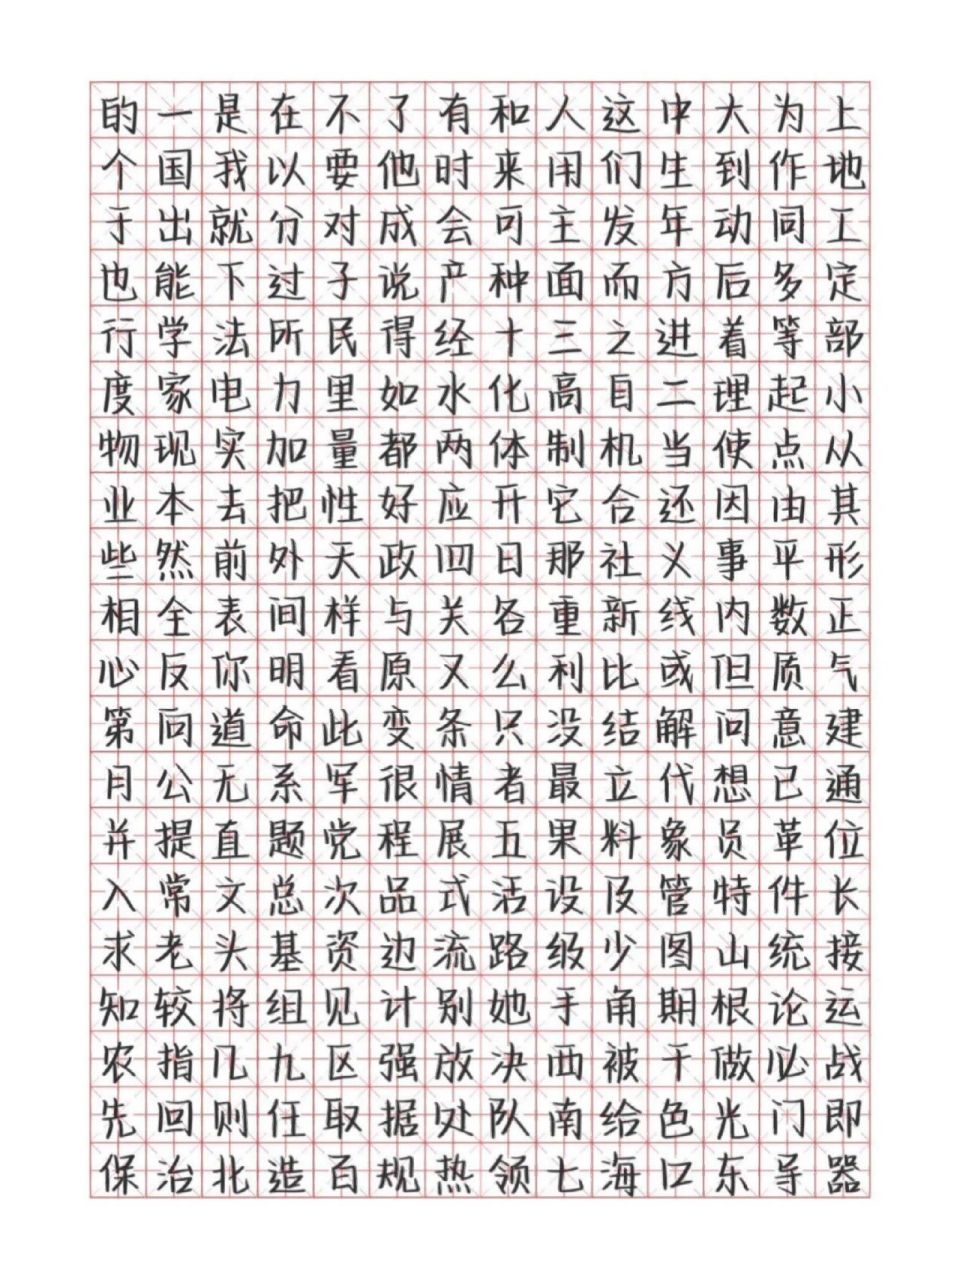 的一是在不了有和人这中大为上
个国我以要他时来用们生到作地
于出就分对成会可主发年动同工
也能下过子说产种面而方后多定
行学法所民得经十三之进着等部
度家电力里如水化高自二理起小
物现实加量都两体制机当使点从
业本去把性好应开它合还因由其
些然前外天政四日那社义事平形
相全表间样与关各重新线内数正
心反你明看原又么利比或但质气
第向道命此变条只没结解问意建
月公无系军很情者最立代想已通
并提直题党程展五果料象员革位
入常文总次品式活设及管特件长
求老头基资边流路级少图山统接
知较将组见计别她手角期根论运
农指几九区强放决西被干做必战
先回则任取据处队南给色光门即
保治北造百规热领七海口东导器